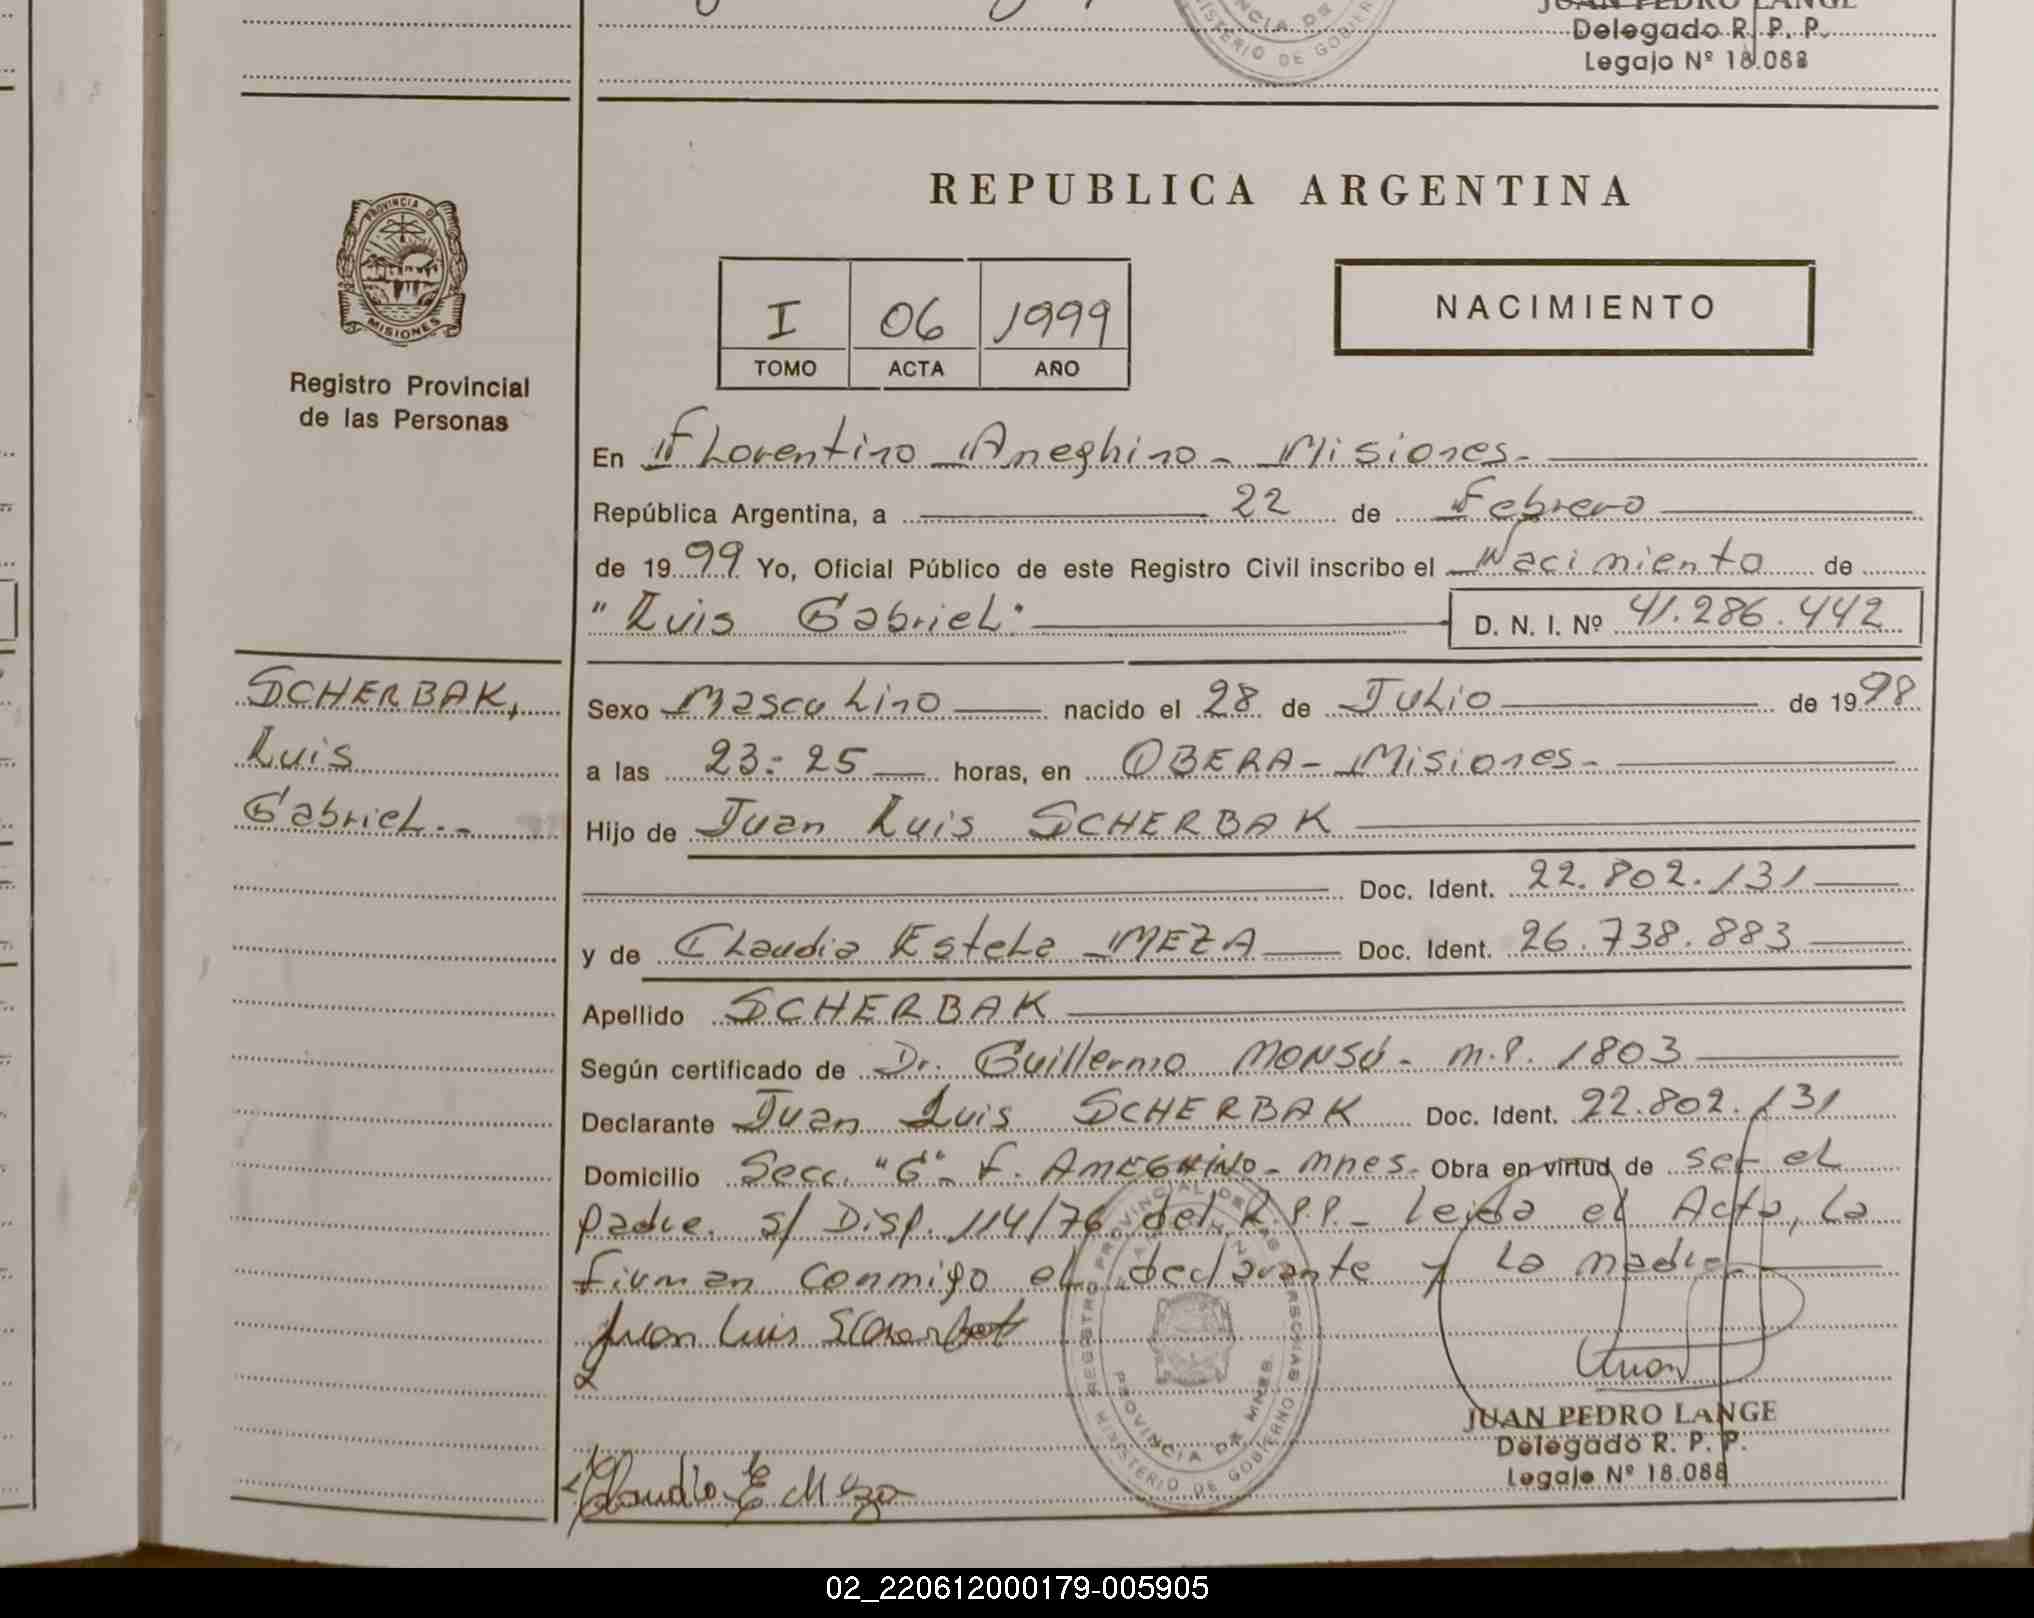 JUAN PEDRO LANGE
Delegado R. P. P.
Legajo Nº 18.088
MINISTERIO DE GOBIERNO
PROVINCIA DE
MISIONES
Registro Provincial
de las Personas
REPUBLICA ARGENTINA
I 06 1999
TOMO ACTA AÑO
NACIMIENTO
En Florentino Aneghino - Misiones.-
República Argentina, a 22 de Febrero
de 1999 Yo, Oficial Público de este Registro Civil inscribo el Nacimiento de
"Luis Gabriel" D. N. I. Nº 41.286.442
SCHERBAK,
Luis
Gabriel.-
Sexo Masculino nacido el 28 de Julio de 1998
a las 23:25 horas, en OBERA - Misiones -
Hijo de Juan Luis SCHERBAK
Doc. Ident. 22.802.131
y de Claudia Estela MEZA Doc. Ident. 26.738.883
Apellido SCHERBAK
Según certificado de Dr. Guillermo MONSÚ - M.P. 1803
Declarante Juan Luis SCHERBAK Doc. Ident. 22.802.131
Domicilio Secc. "G" - F. AMEGHINO - Mnes. Obra en virtud de ser el
padre. s/ Disp. 114/76 del R.P.P. - Leida el Acta, la
firman conmigo el declarante y la madre.
Juan Luis Scherbak
Claudia E Meza
REGISTRO PROVINCIAL DE LAS PERSONAS
MINISTERIO DE GOBIERNO
PROVINCIA DE MNES.
JUAN PEDRO LANGE
Delegado R. P. P.
Legajo Nº 18.088
02_220612000179-005905